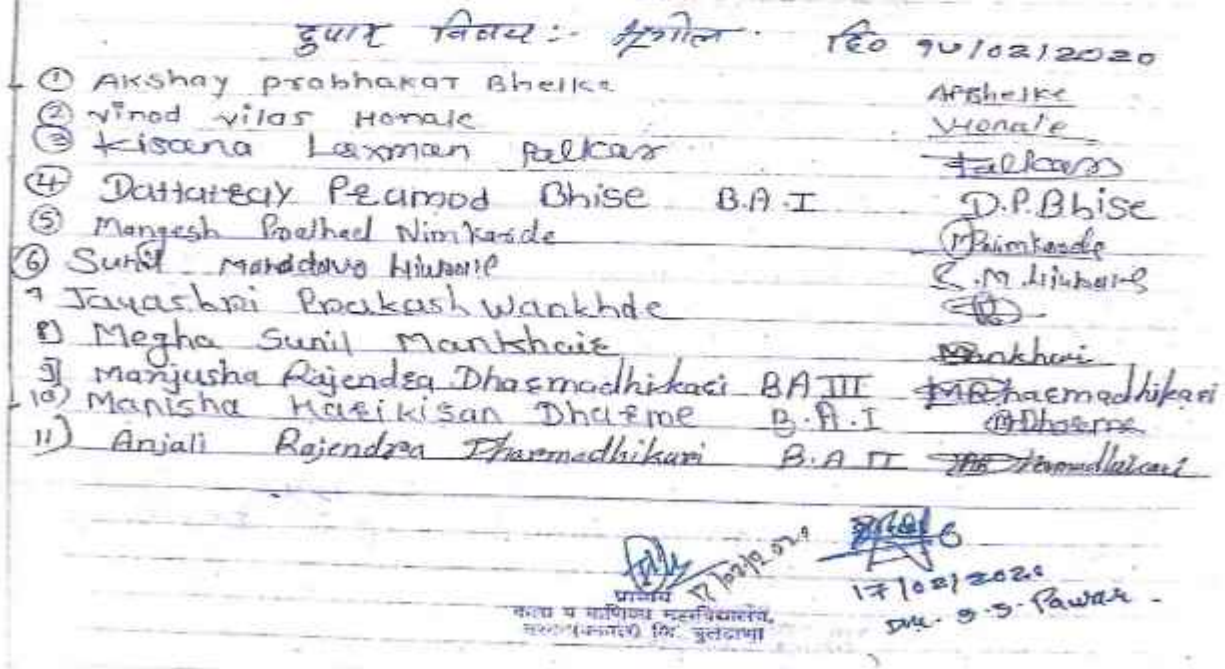 विषय :- भूगोल. दि० १७/०२/२०२०
① Akshay prabhakar Bhelke APBhelke
② vinod vilas Honale VHonale
③ Kisana Laxman Palkar Palkar
④ Dattatray Pramod Bhise B.A.I D.P.Bhise
⑤ Mangesh Pralhad Nimkarde MPNimkarde
⑥ Sunil S.M.
7 Jayashri Prakash Wankhde
8) Megha Sunil Mankhair Mankhair
9] Manjusha Rajendra Dharmadhikari BA III MRDharmadhikari
10) Manisha Harikisan Dharme B.A.I MDharme
11) Anjali Rajendra Dharmadhikari B.A II Dharmadhikari
17/02/2020
17/02/2020
S.S. Pawar
प्राचार्य
कला व वाणिज्य महाविद्यालय,
जि. बुलढाणा